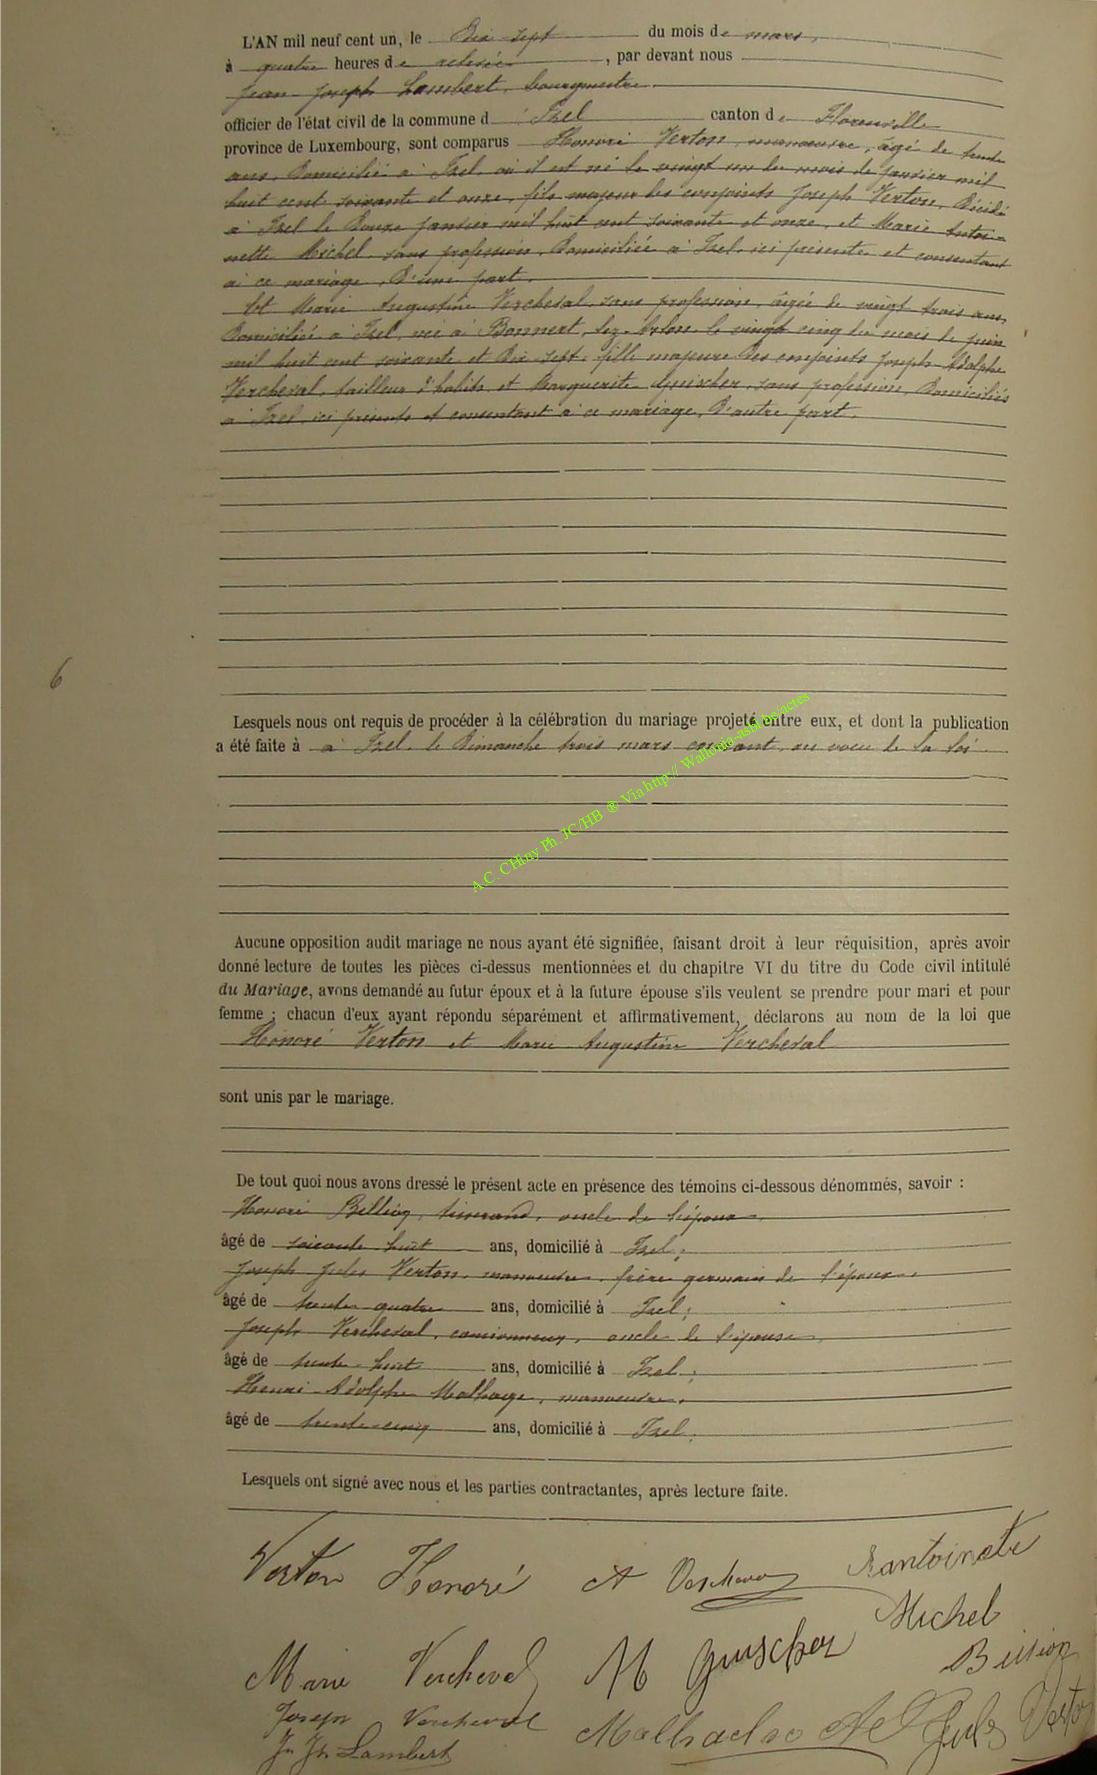 L'AN mil neuf cent un, le Dix-sept du mois de mars,
à quatre heures de relevée, par devant nous
Jean-Joseph Lambert, bourgmestre
officier de l'état civil de la commune d'Izel canton de Florenville
province de Luxembourg, sont comparus Honoré Verton, manœuvre, âgé de trente
ans, Domicilié à Izel, où il est né le vingt un du mois de janvier mil
huit cent soixante et onze, fils majeur des conjoints Joseph Verton, Décédé
à Izel le Douze janvier mil huit cent soixante et onze, et Marie Antoi-
nette Michel, sans profession, Domiciliée à Izel, ici présente et consentant
à ce mariage, D'une part,
Et Marie Augustine Vercheval, sans profession, âgée de vingt trois ans,
Domiciliée à Izel, née à Bonnert, lez-Arlon le vingt cinq du mois de juin
mil huit cent soixante et Dix-sept, fille majeure des conjoints Joseph Adolphe
Vercheval, tailleur d'habits, et Marguerite Guischer, sans profession, Domiciliés
à Izel, ici présents et consentant à ce mariage, D'autre part.
6
Lesquels nous ont requis de procéder à la célébration du mariage projeté entre eux, et dont la publication
a été faite à à Izel, le Dimanche trois mars courant, au vœu de la loi
A.C. CHiny Ph. JC/HB ® Via http:// Wallonia-asbl.be/actes
Aucune opposition audit mariage ne nous ayant été signifiée, faisant droit à leur réquisition, après avoir
donné lecture de toutes les pièces ci-dessus mentionnées et du chapitre VI du titre du Code civil intitulé
du Mariage, avons demandé au futur époux et à la future épouse s'ils veulent se prendre pour mari et pour
femme ; chacun d'eux ayant répondu séparément et affirmativement, déclarons au nom de la loi que
Honoré Verton et Marie Augustine Vercheval
sont unis par le mariage.
De tout quoi nous avons dressé le présent acte en présence des témoins ci-dessous dénommés, savoir :
Honoré tisserand, oncle de l'époux,
âgé de soixante huit ans, domicilié à Izel;
Joseph Jules Verton, manœuvre, frère germain de l'époux,
âgé de trente quatre ans, domicilié à Izel;
Joseph Vercheval, camionneur, oncle de l'épouse,
âgé de trente-huit ans, domicilié à Izel;
Henri Adolphe manœuvre,
âgé de trente-cinq ans, domicilié à Izel;
Lesquels ont signé avec nous et les parties contractantes, après lecture faite.
Verton Honoré A Vercheval antoinette
Michel
Marie Vercheval M Guischer
Joseph Vercheval Jules Verton
Jn Jh Lambert